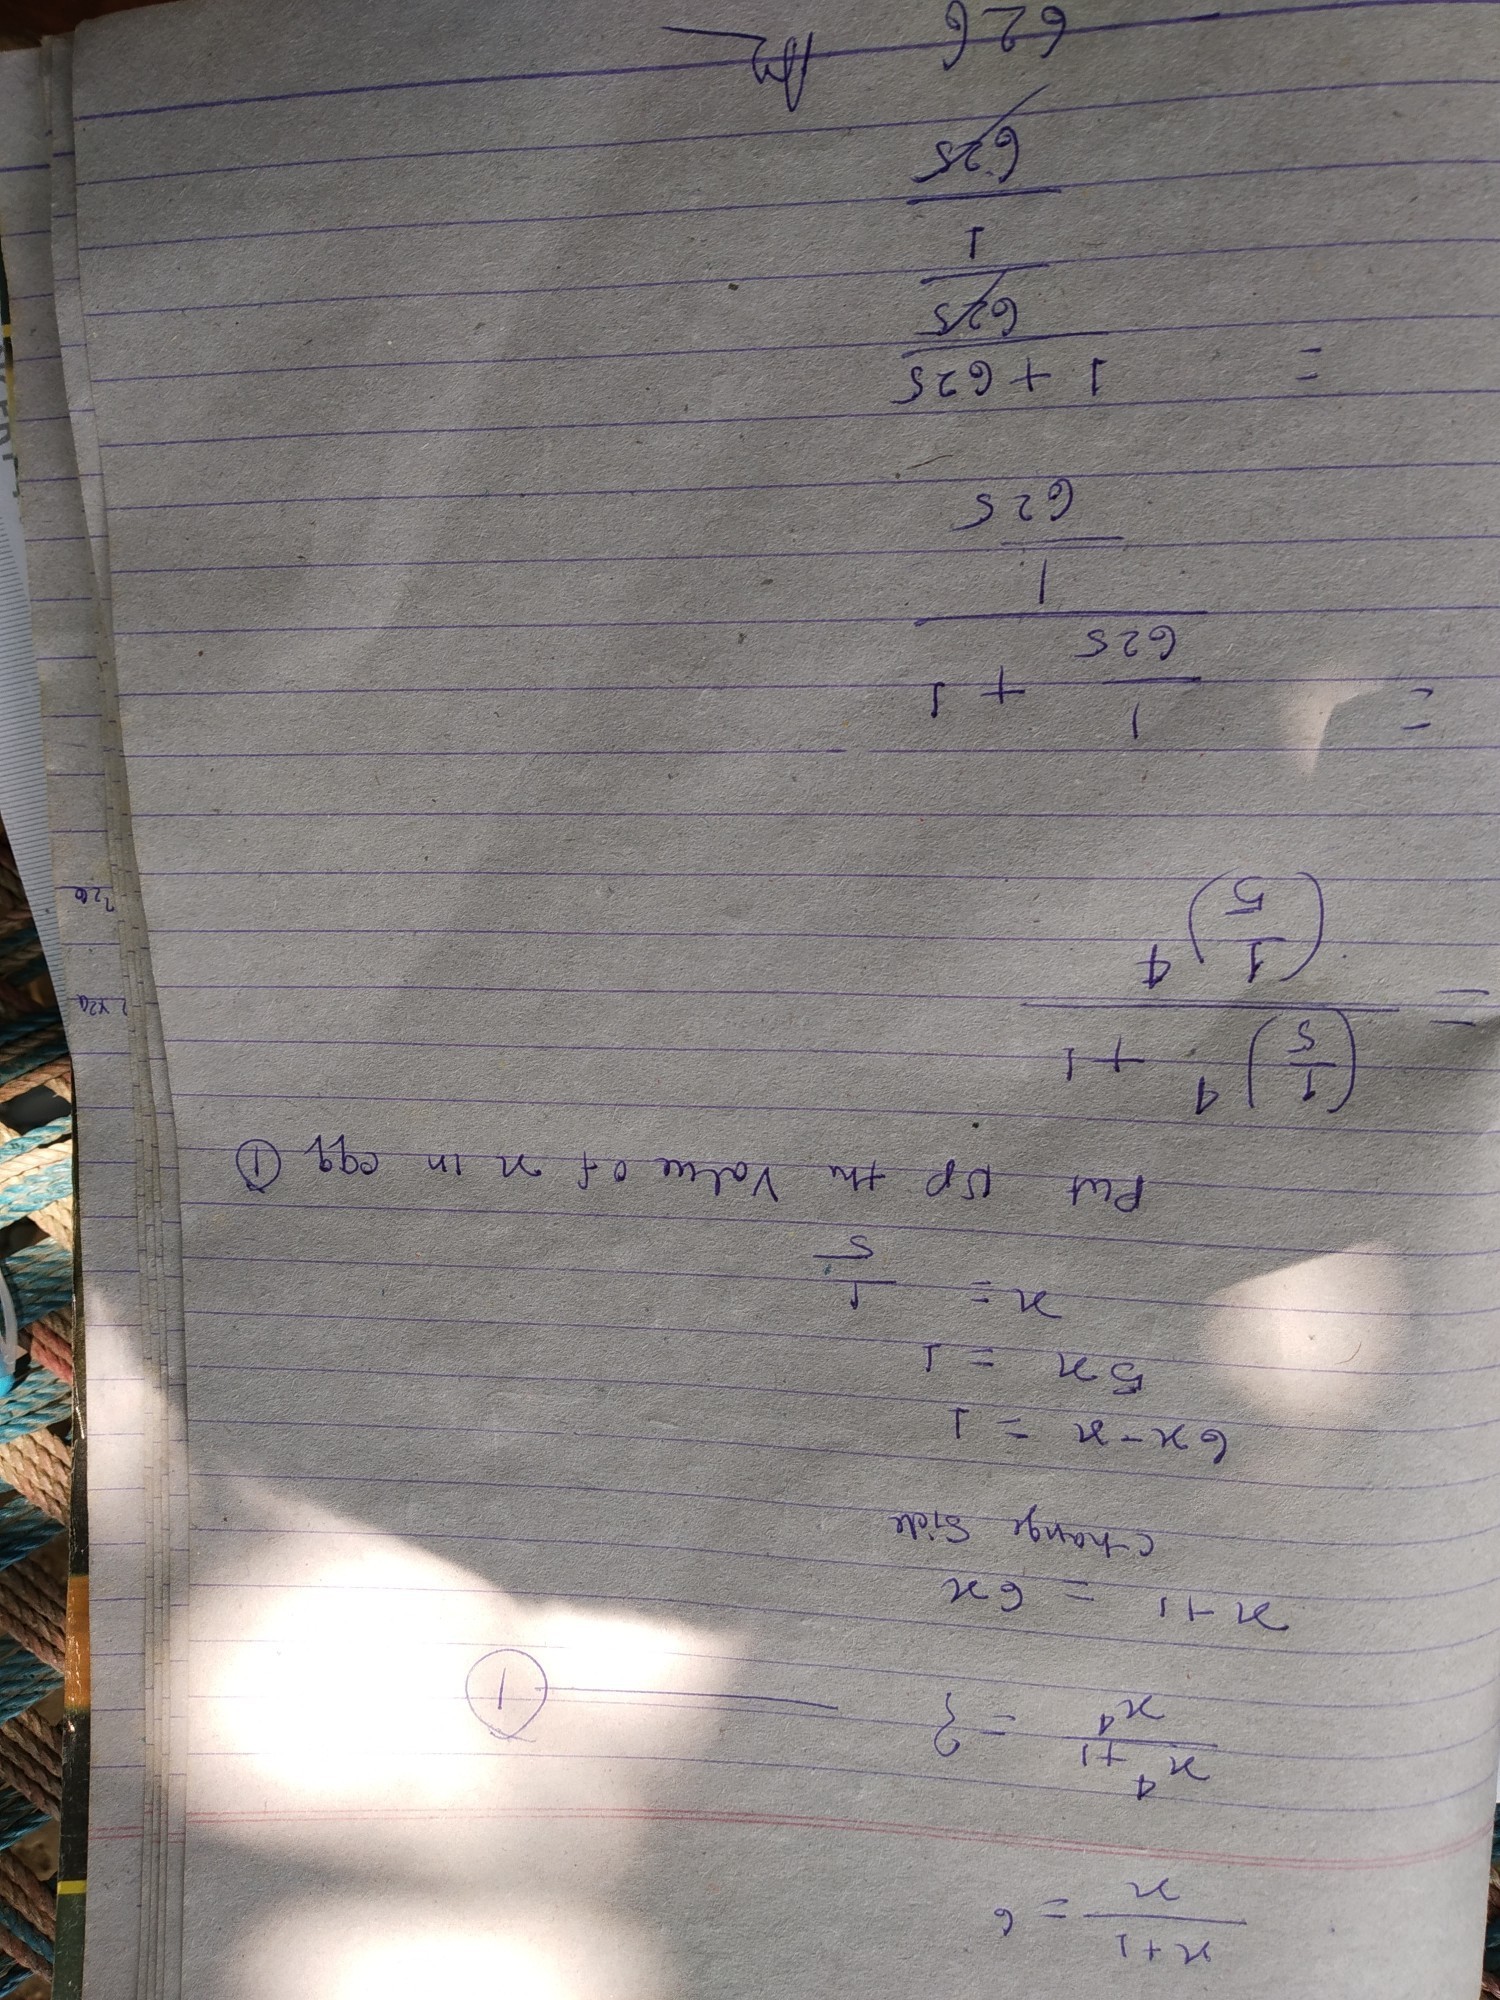 x+1
x
= 6
x⁴+1
x⁴
= ? ——— ①
x+1 = 6x
Change Side
6x-x = 1
5x = 1
x = 1
5
Put Up the Value of x in eqq ①
= (1/5)⁴ + 1
(1/5)⁴
= 1/625 + 1
1
625
= 1+625
625
1
625
626 Ans